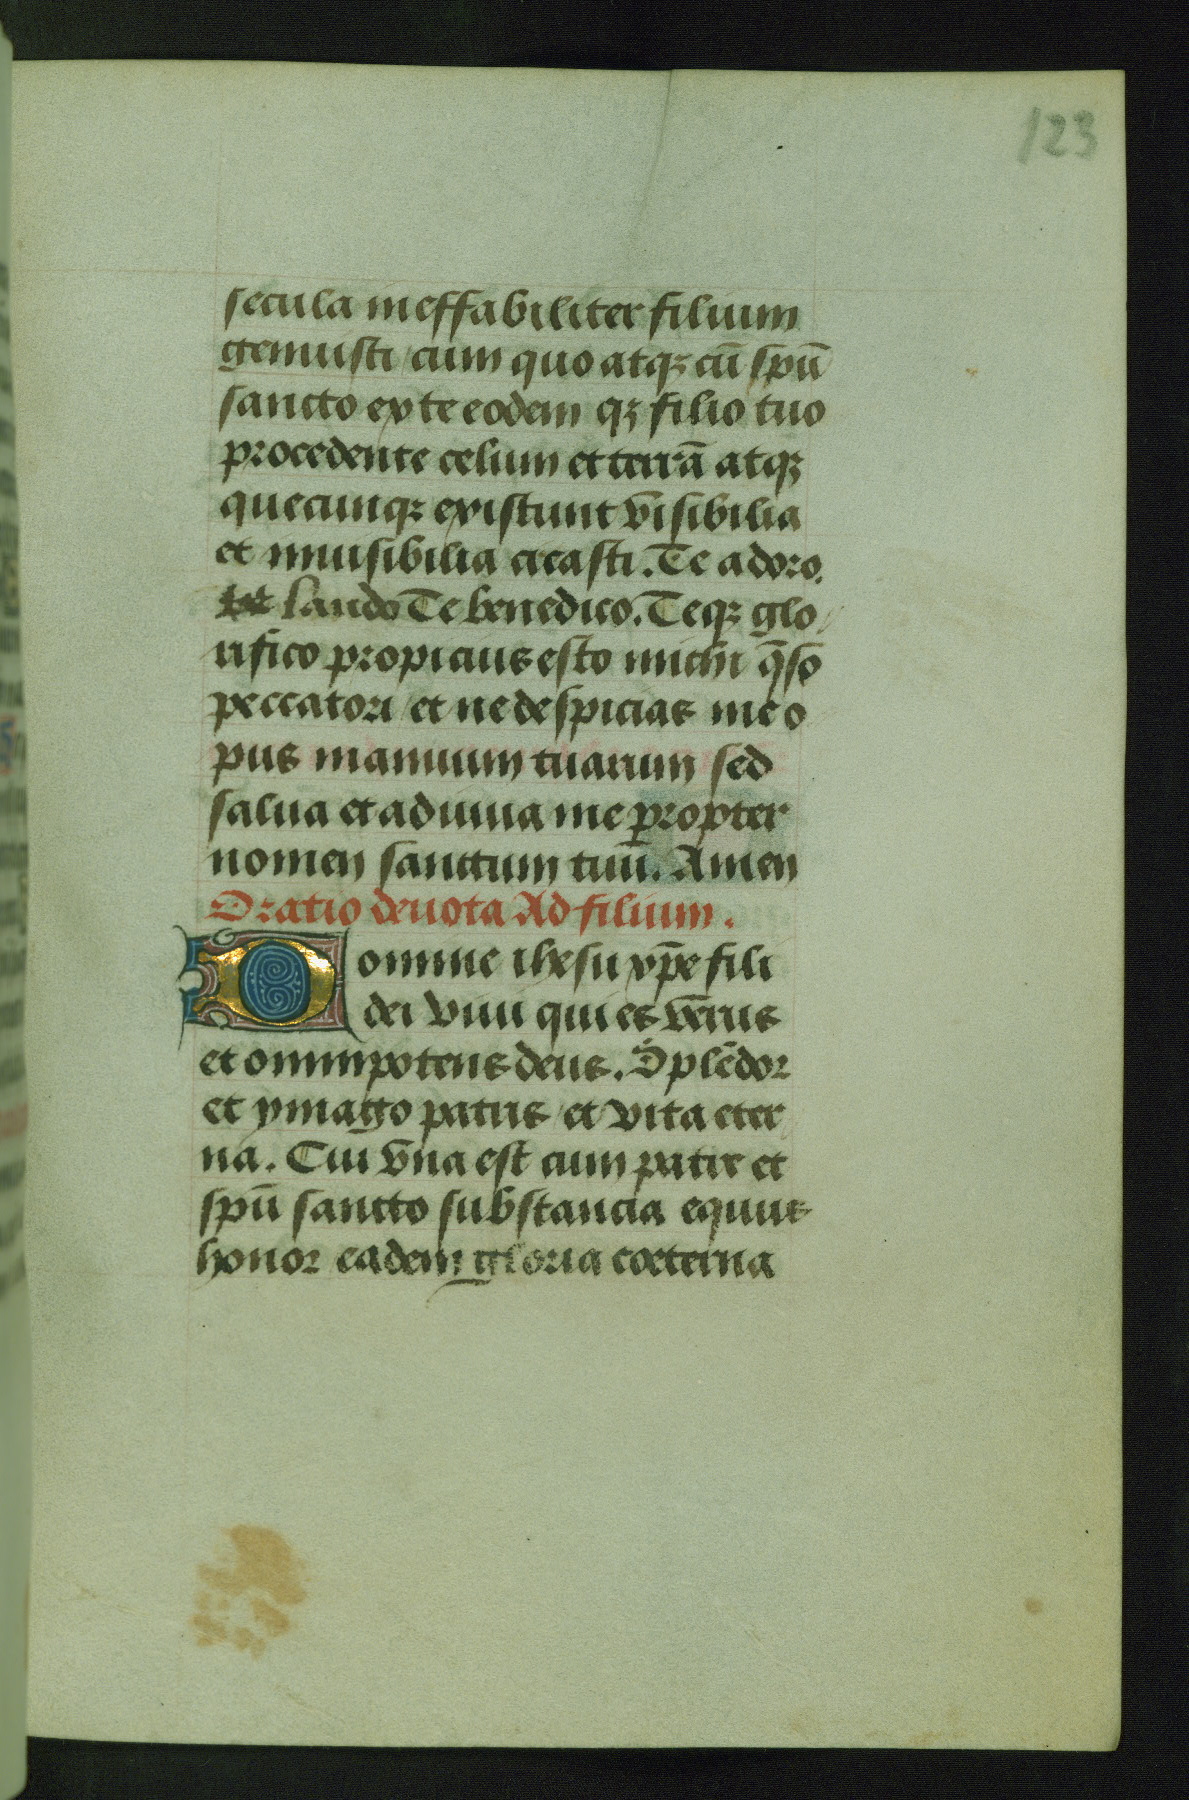 123
secula ineffabiliter filium
genuisti cum quo atqꝫ cū spū
sancto ex te eodem qꝫ filio tuo
procedente celium et terrā atqꝫ
quecunqꝫ existunt visibilia
et inuisibilia creasti. Te adoro.
laudo Te benedico. Teqꝫ glo
rifico propicius esto michi q̄so
peccatori et ne despicias me o
pus manuum tuarum sed
salua et adiuua me propter
nomen sanctum tuū. Amen
Oratio deuota Ad filium.
Domine ihesu xp̄e fili
dei viui qui es verus
et omnipotens deus. Splēdor
et ymago patris et vita eter
na. Cui vna est cum patre et
spū sancto substancia equus
honor eadem gloria coeterna